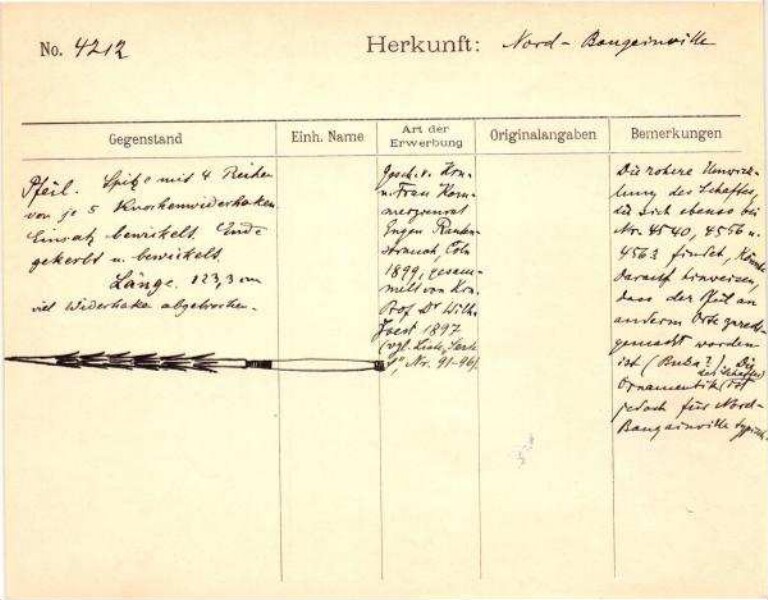 No. 4212 Herkunft: Nord-Bougainville
Gegenstand
Einh. Name
Art der
Erwerbung
Originalangaben
Bemerkungen
Pfeil. Spitze mit 4 Reihen
von je 5 Knochenwiderhaken
Einsatz bewickelt. Ende
gekerbt u. bewickelt.
Länge. 123,3 cm
viel Widerhaken abgebrochen.
Gesch. v. Hrn.
u. Frau Kom-
merzienrat
Eugen Rauten-
strauch, Cöln
1899, gesam-
melt von Hrn.
Prof Dr Wilh.
Joest 1897
(vgl. Liste, Serie
Nr. 91-96).
Die rohere Umwick-
lung des Schaftes,
die sich ebenso bei
Nr. 4540, 4556 u.
4563 findet, könnte
darauf hinweisen,
dass der Pfeil an
anderm Orte zurecht-
gemacht worden
ist (Buka?). Die
Ornamentik (des Schaftes) ist
jedoch für Nord-
Bougainville typisch.